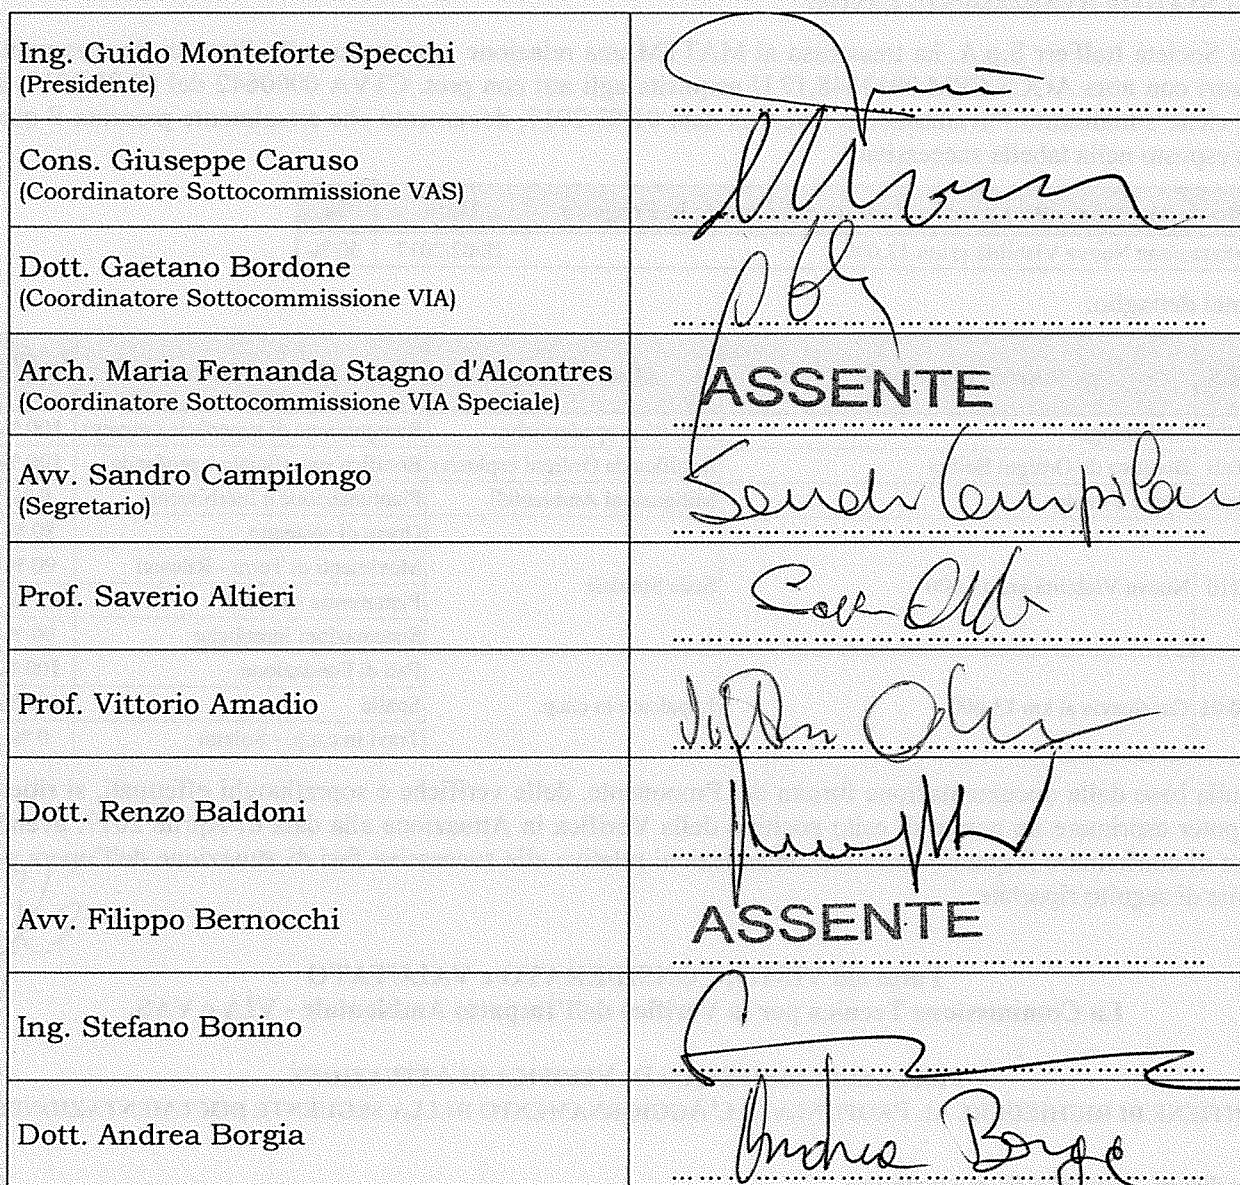 Ing. Guido Monteforte Specchi
(Presidente)
Cons. Giuseppe Caruso
(Coordinatore Sottocommissione VAS)
Dott. Gaetano Bordone
(Coordinatore Sottocommissione VIA)
Arch. Maria Fernanda Stagno d'Alcontres
(Coordinatore Sottocommissione VIA Speciale)
ASSENTE
Avv. Sandro Campilongo
(Segretario)
Sandro Campilon
Prof. Saverio Altieri
Prof. Vittorio Amadio
Dott. Renzo Baldoni
Avv. Filippo Bernocchi
ASSENTE
Ing. Stefano Bonino
Dott. Andrea Borgia
Andrea Borgia